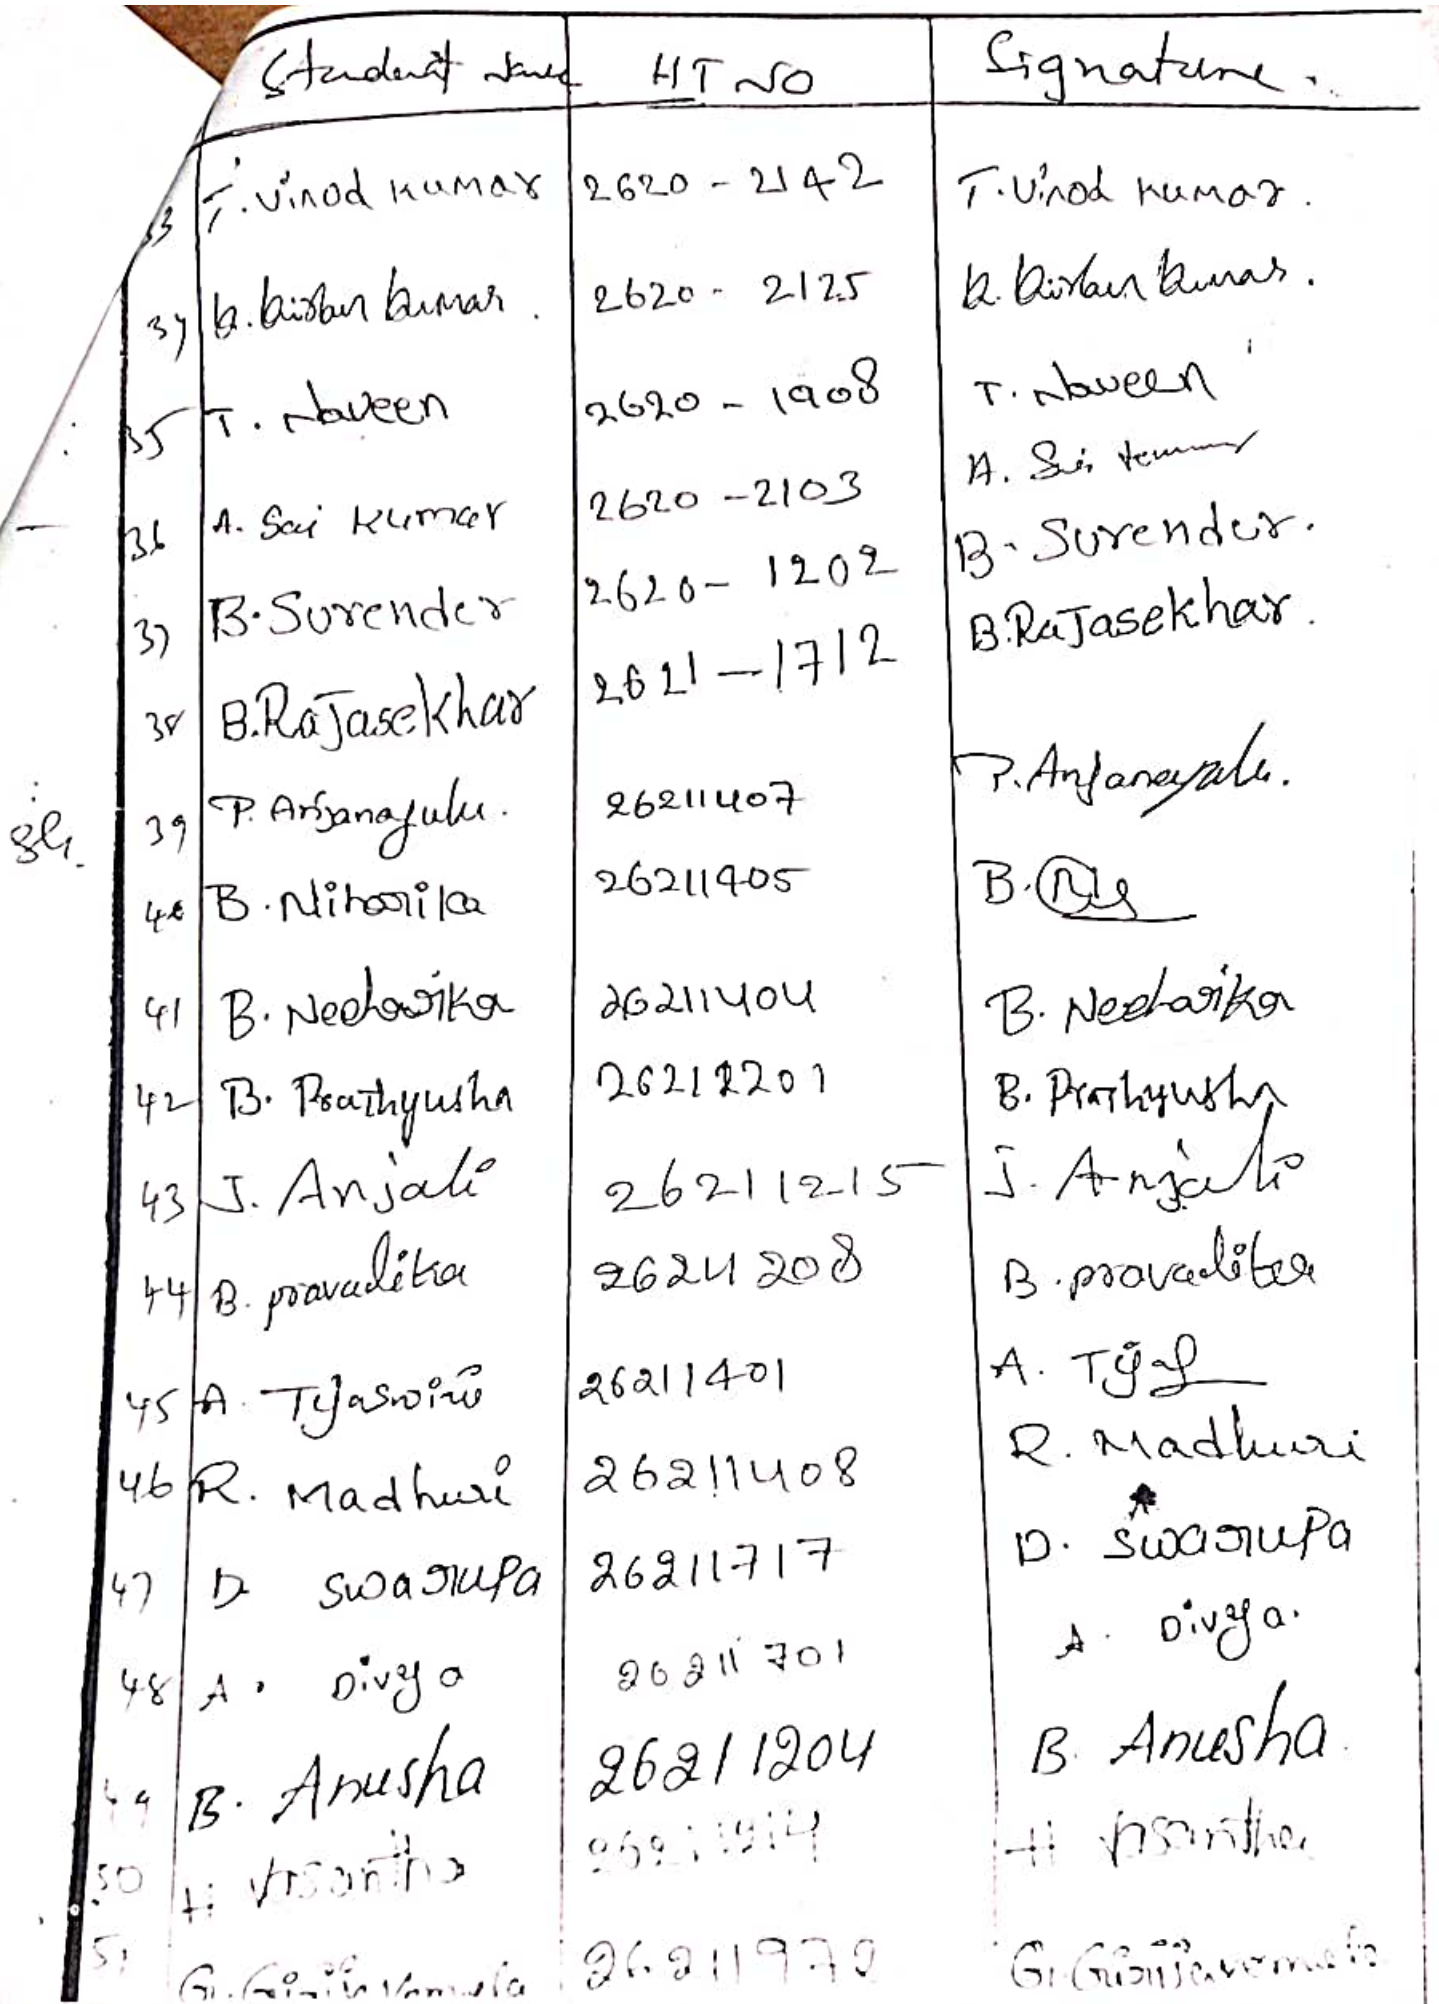 Student Name HT NO Signature.
33 T. Vinod Kumar 2620 - 2142 T. Vinod Kumar.
34 K. Kiran Kumar. 2620 - 2125 K. Kiran Kumar.
35 T. Naveen 2620 - 1908 T. Naveen
36 A. Sai Kumar 2620 - 2103 A. Sai Kumar
37 B. Surender 2620 - 1202 B. Surender.
38 B. RaJasekhar 2621 - 1712 B. RaJasekhar.
39 P. Anjanayulu. 26211407 P. Anjanayulu.
40 B. Niharika 26211405 B.
41 B. Neeharika 26211404 B. Neeharika
42 B. Prathyusha 26212201 B. Prathyusha
43 J. Anjali 26211215 J. Anjali
44 B. pravalika 26211208 B. pravalika
45 A. Tejaswini 26211401 A. Tej
46 R. Madhuri 26211408 R. Madhuri
47 D swarupa 26211717 D. swarupa
48 A. Divya 26211701 A. Divya.
49 B. Anusha 26211204 B. Anusha.
50 H Vasantha H Vasantha
51 G. 26211972 G.